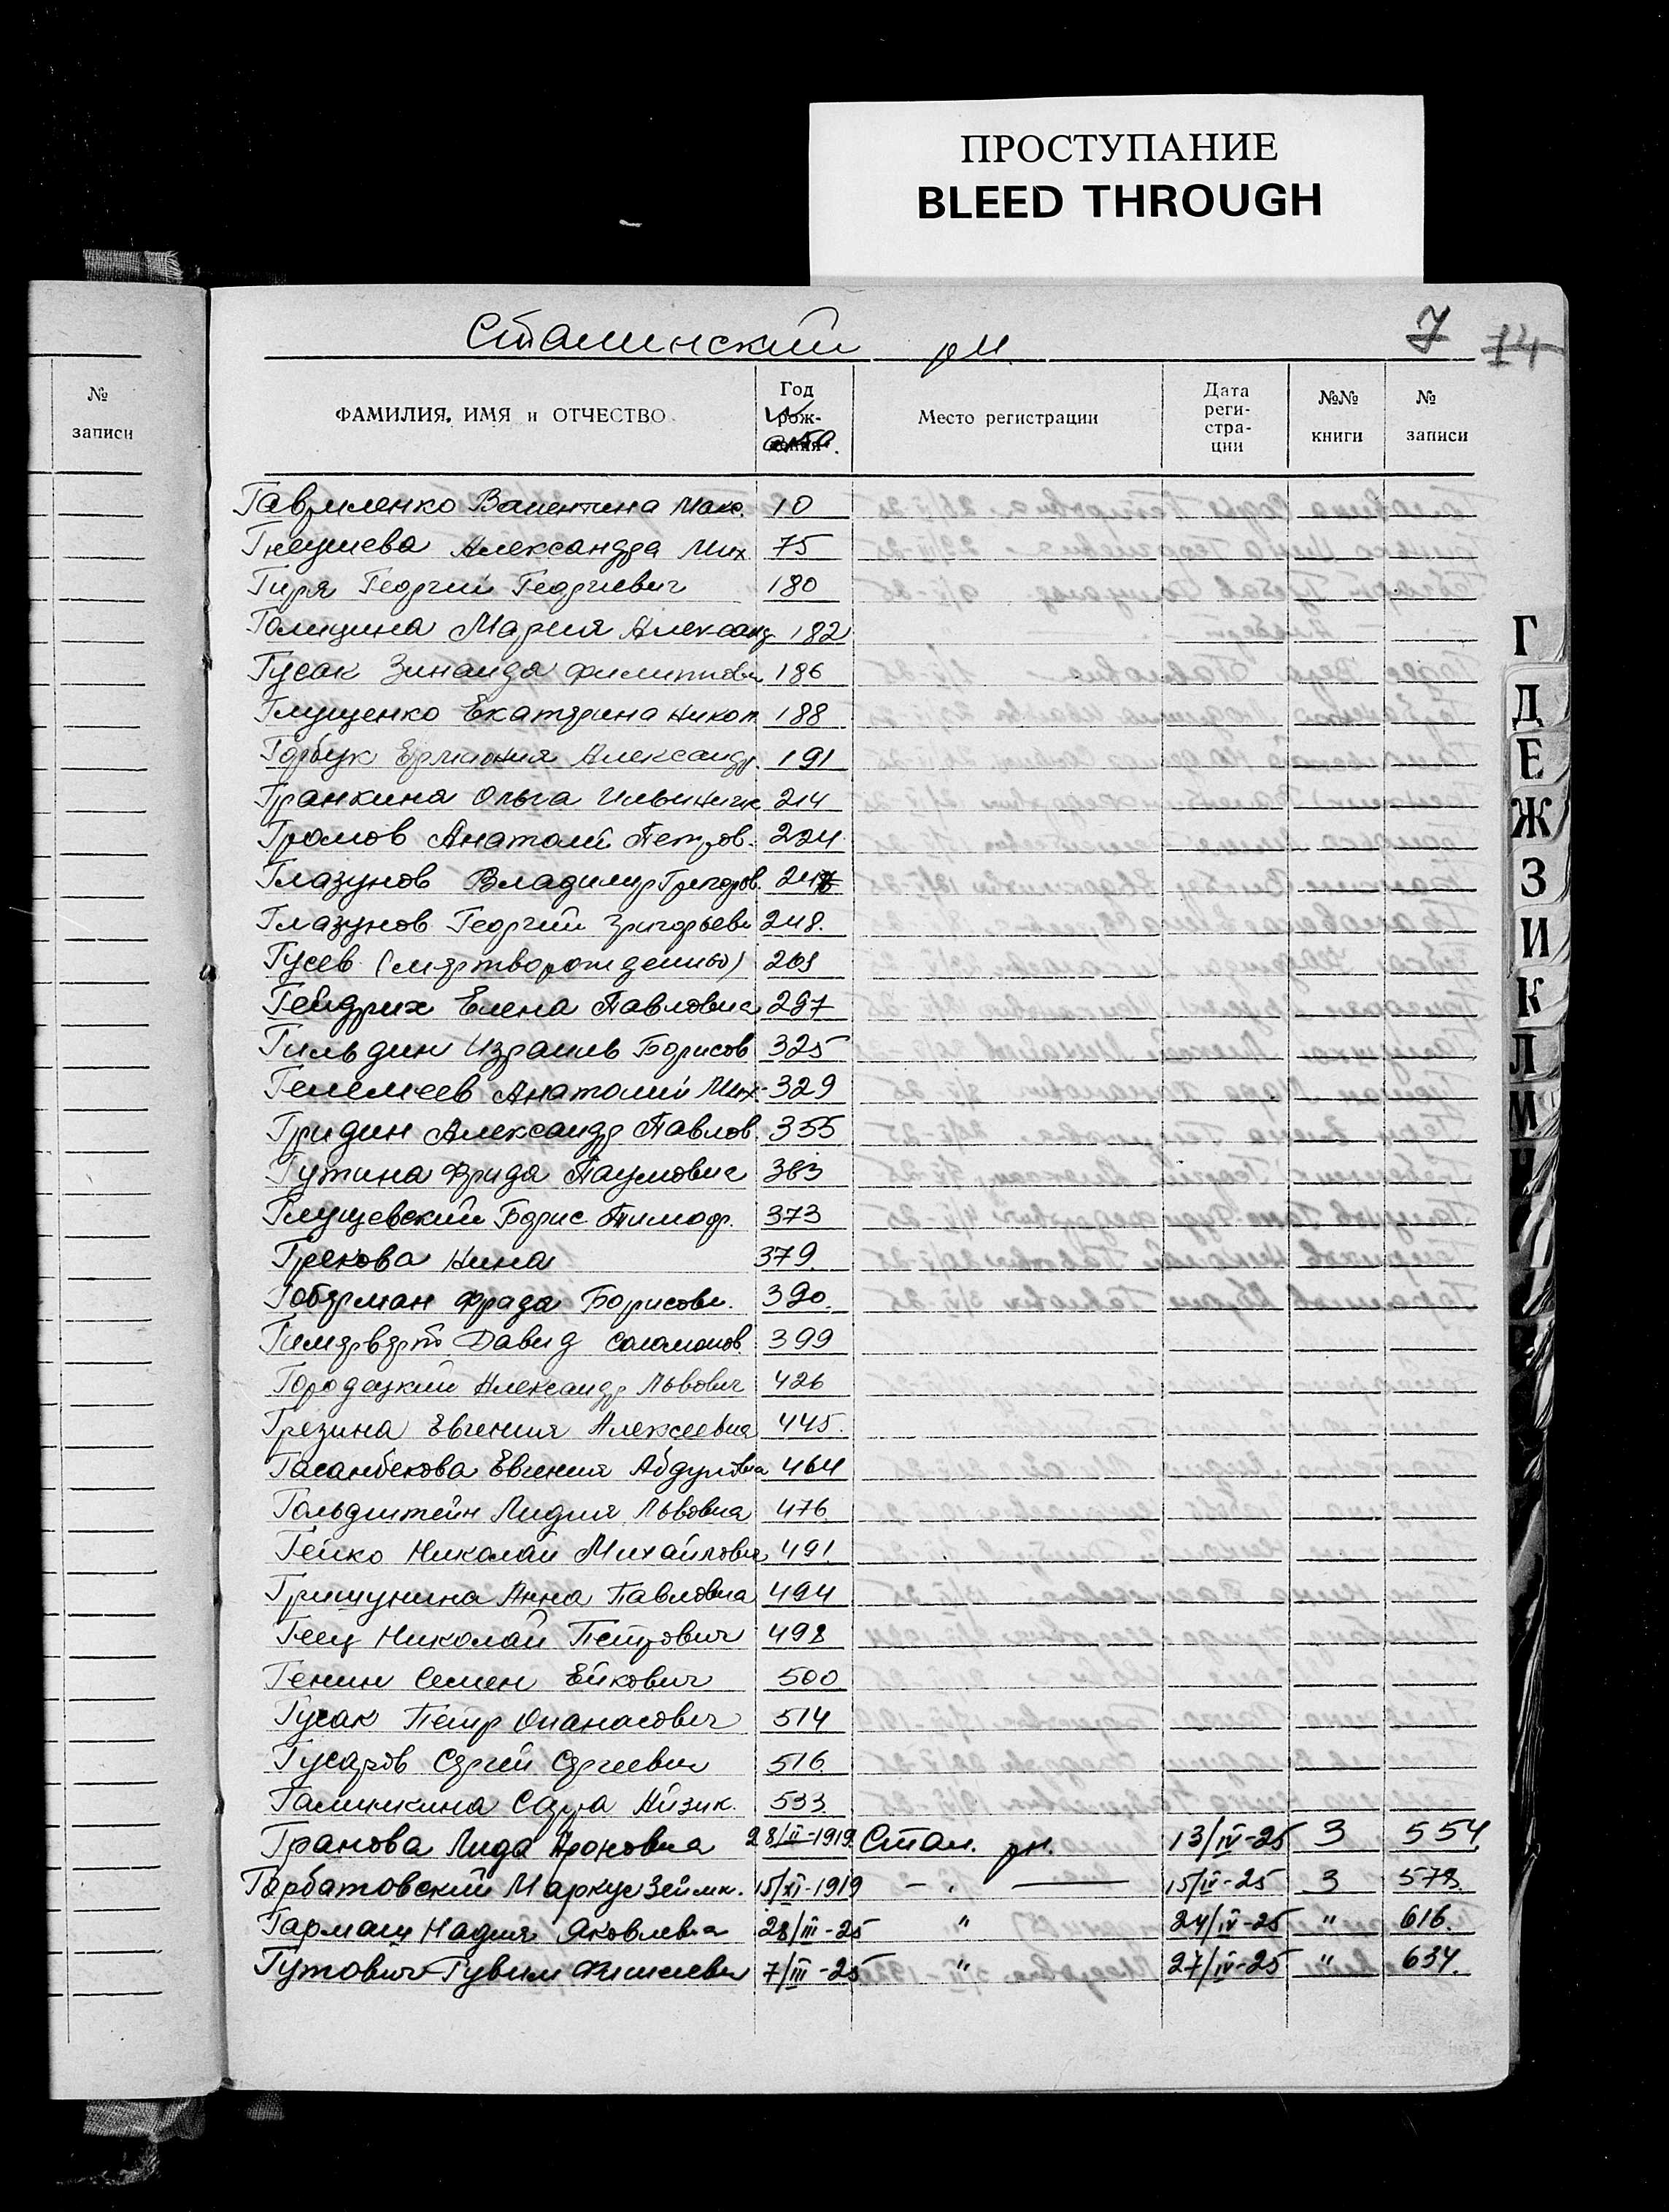 ПРОСТУПАНИЕ
BLEED THROUGH
Сталинский рн. 7 14
№ записи
ФАМИЛИЯ, ИМЯ и ОТЧЕСТВО Год рож- Место регистрации Дата реги-стра-ции №№ книги № записи
Гавриленко Валентина Макс. 10
Гнеушева Александра Мих. 75
Гиря Георгий Георгиевич 180
Голицина Мария Александ. 182
Гусак Зинаида Филипповн 186
Глущенко Екатерина Никол. 188
Горбук Ермиония Александр. 191
Гранкина Ольга Ильинич 214
Громов Анатолий Петров. 224
Глазунов Владимир Григоров. 247
Глазунов Георгий Григорьеви 248.
Гусев (мертворожденный) 269
Гейдрих Елена Павловна 297
Гильдин Израиль Борисов 325
Гелемеев Анатолий Мих. 329
Гридин Александр Павлов. 355
Гутина Фрида Наумовна 363
Глущевский Борис Тимоф. 373
Грекова Нина 379.
Гоберман Фрада Борисовн. 390.
Гимерверт Давид Соломонов. 399
Городецкий Александр Львович 426
Грезина Евгения Алексеевна 445.
Гасанбекова Евгения Абдуловна 464
Гольдштейн Лидия Львовна 476
Гейко Николай Михайлович 491
Гришунина Анна Павловна 494
Геец Николай Петрович 498
Генин Семен Ейкович 500
Гусак Петр Опанасович 514
Гусаров Сергей Сергеевич 516
Галинкина Сарра Айзик. 533
Гранова Лида Ароновна 28/II-1919 Стал. рн. 13/IV-25 3 554.
Горбатовский Маркус Зейлик. 15/XI-1919 - " - 15/IV-25 3 578.
Гармаш Надия Яковлевна 28/III-25 " 24/IV-25 " 616.
Гутович Гувим Фишелевич 7/III-25 " 27/IV-25 " 634.
Г
Д
Е
Ж
З
И
К
Л
М